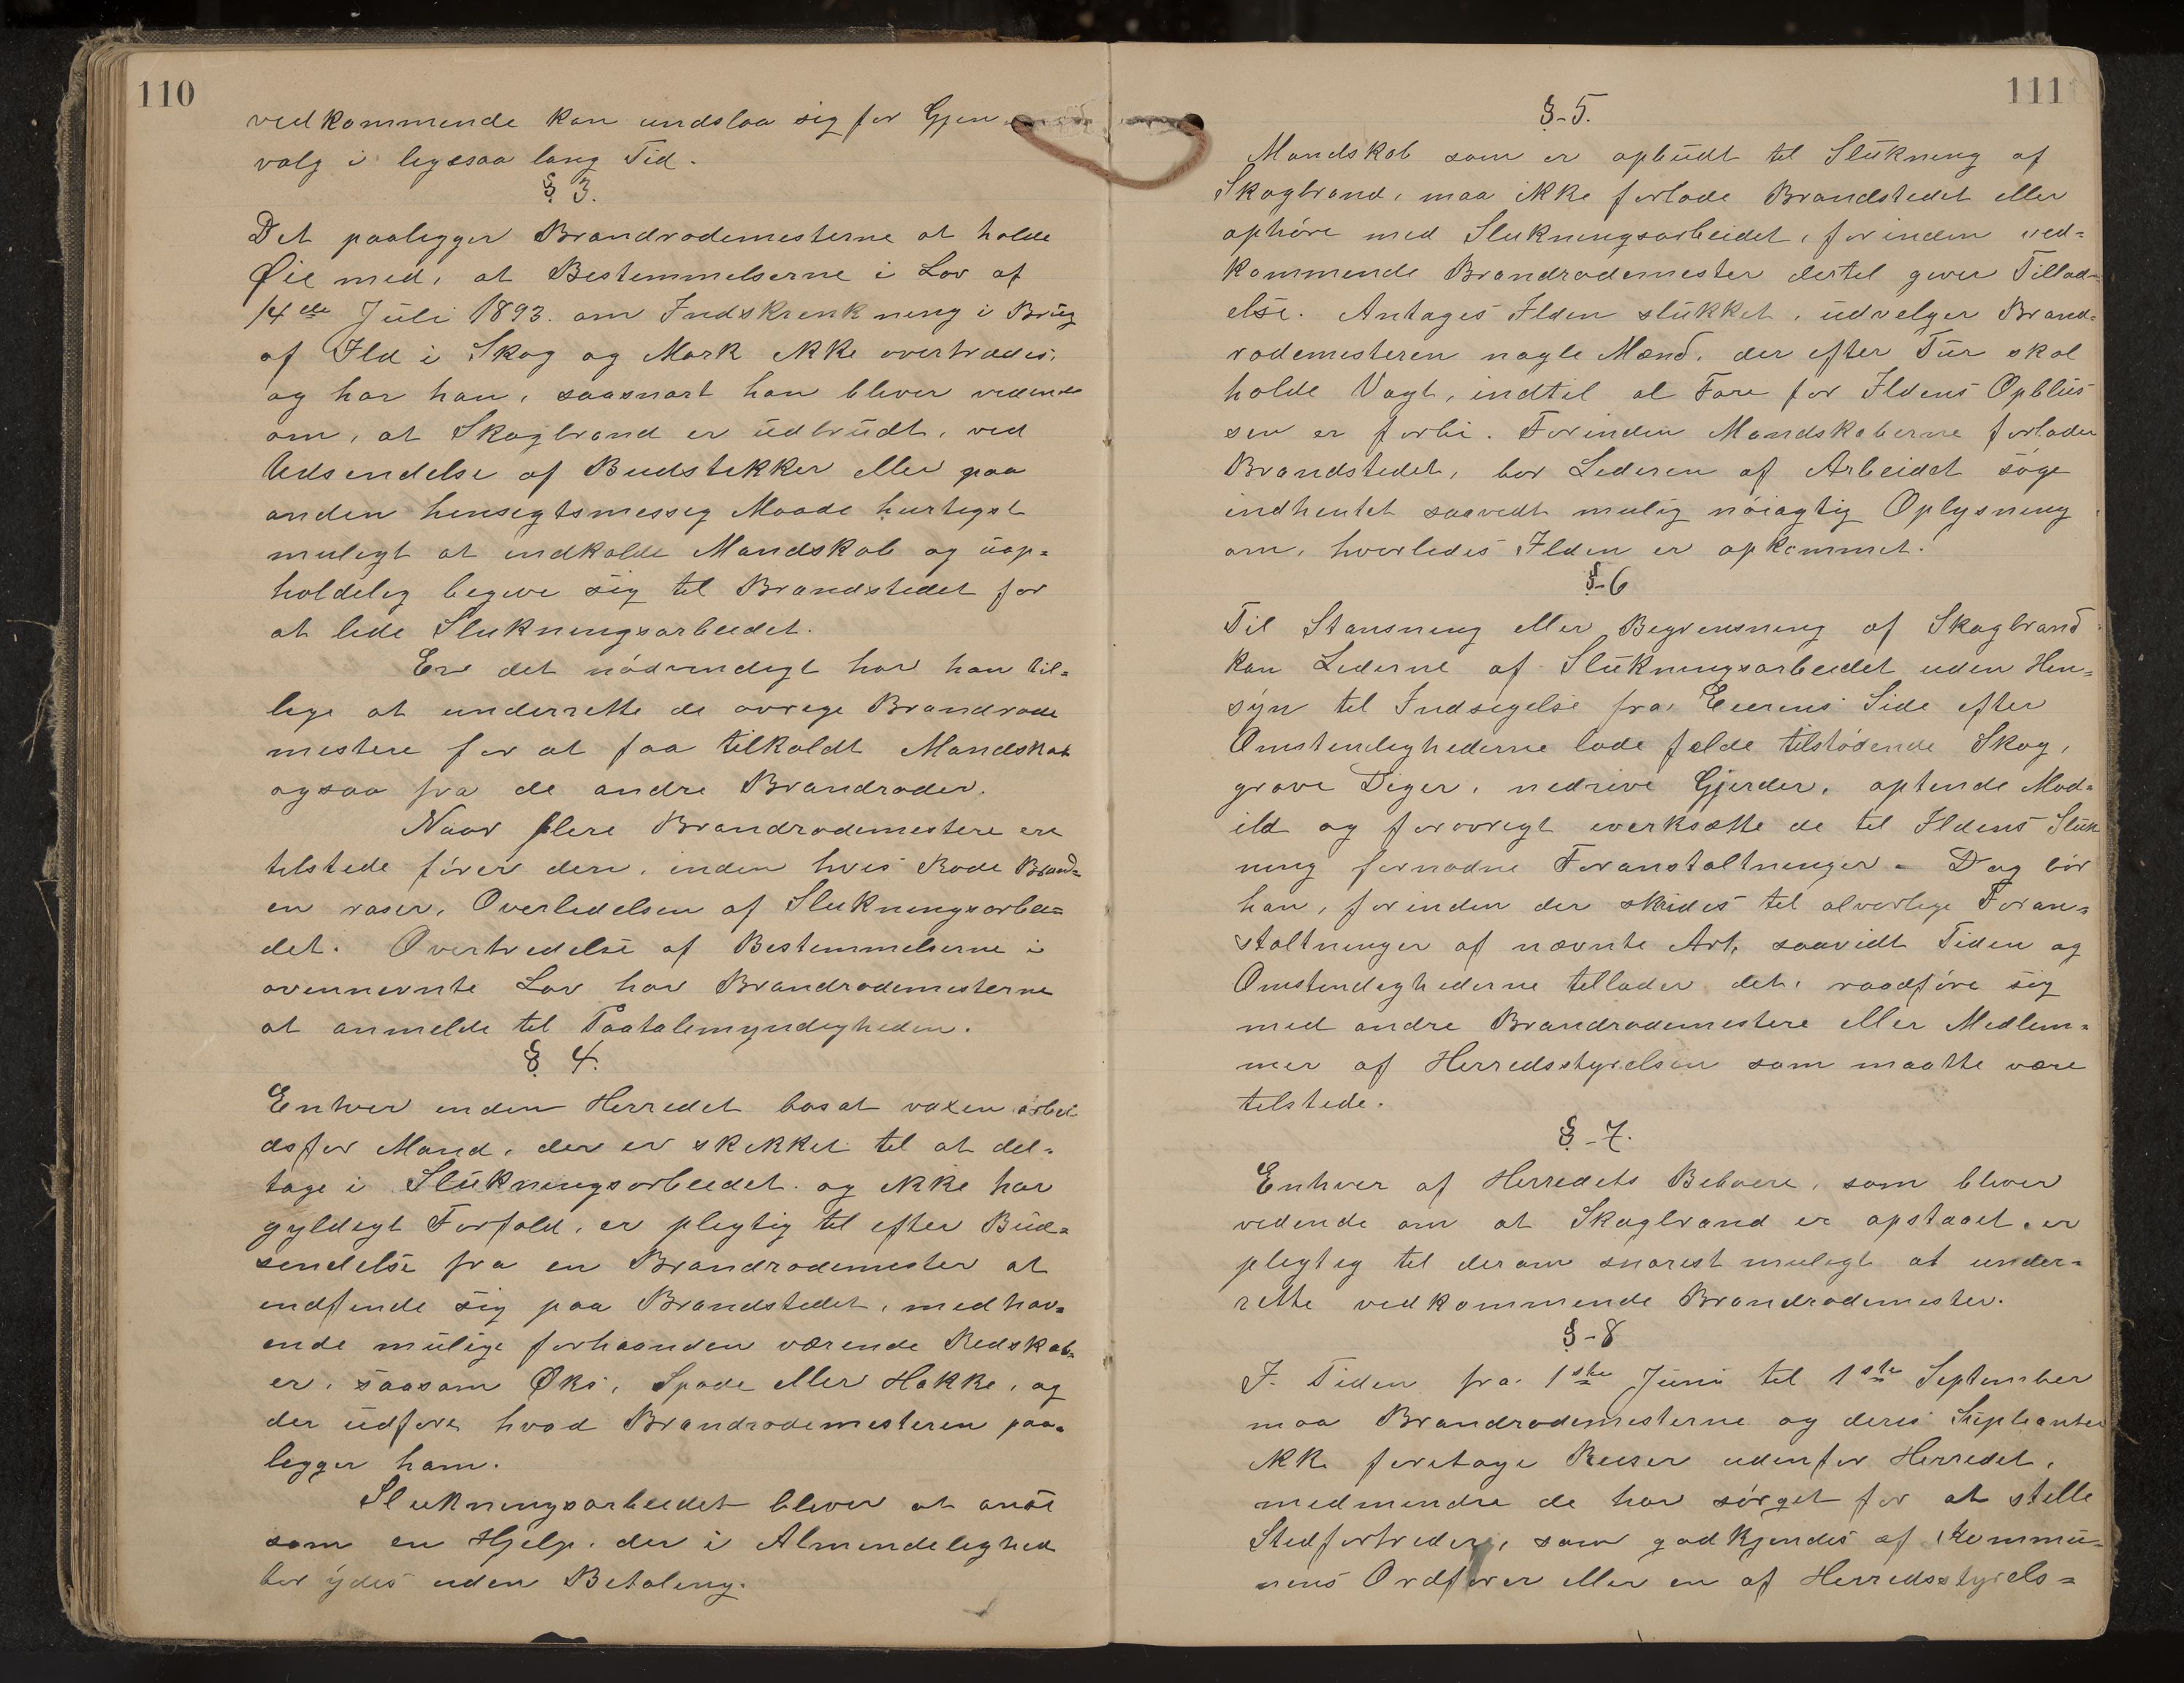 110
vedkommende kan undslaa sig for Gjen
valg i ligesaa lang Tid.
§ 3.
Det paaligger Brandrodemesterne at holde
Øie med, at Bestemmelserne i Lov af
14de Juli 1893. om Indskrenkning i Brug
af Ild i Skog og Mark ikke overtrædes,
og har han, saasnart han bliver vidende
om, at Skogbrand er udbrudt, ved
Udsendelse af Budstikker eller paa
anden hensigtsmessig Maade hurtigst
muligt at indkalde Mandskab og uop=
holdelig begive sig til Brandstedet for
at lede Slukningsarbeidet.
Er det nödvendigt har han til=
lige at underrette de øvrige Brandrode
mestere for at faa tilkaldt Mandskab
ogsaa fra de andre Brandroder.
Naar flere Brandrodemestere ere
tilstede förer den, inden hvis Rode Brand=
en raser, Overledelsen af Slukningsarbei=
det. Overtredelse af Bestemmelserne i
ovennevnte Lov har Brandrodemesterne
at anmelde til Paatalemyndigheden.
§ 4.
Enhver inden Herredet bosat voxen arbei
dsfør Mand, der er skikket til at del=
tage i Slukningsarbeidet og ikke har
gyldigt Forfald, er pligtig til efter Bud=
sendelse fra en Brandrodemester at
indfinde sig paa Brandstedet, medhav=
ende mulige forhaanden værende Redskab=
er, saasom Øks, Spade eller Hakke, og
der udføre hvad Brandrodemesteren paa=
legger ham.
Slukningsarbeidet bliver at anse
som en Hjelp, der i Almindelighed
bør ydes uden Betaling.
111
§-5.
Mandskab som er opbudt til Slukning af
Skogbrand, maa ikke forlade Brandstedet eller
ophöre med Slukningsarbeidet, forinden ved=
kommende Brandrodemester dertil giver Tillad=
else. Antages Ilden slukket, udvelger Brand=
rodemesteren nogle Mænd, der efter Tur skal
holde Vagt, indtil al Fare for Ildens Opblus
sen er forbi. Forinden Mandskaberne forlader
Brandstedet, bør Lederen af Arbeidet söge
indhentet saavidt mulig nöiagtig Oplysning
om, hvorledes Ilden er opkommet.
§-6
Til Stansning eller Begrensning af Skogbrand
kan Lederne af Slukningsarbeidet uden Hen=
syn til Indsigelse fra Eierens Side efter
Omstendighederne lade fælde tilstödende Skog,
grave Diger, nedrive Gjerder, optende Mod=
ild og forøvrigt iverksætte de til Ildens Sluk
ning fornødne Foranstaltninger. Dog bör
han, forinden der skrides til alvorlige Foran=
staltninger af nævnte Art, saavidt Tiden og
Omstendighederne tillader det, raadföre sig
med andre Brandrodemestere eller Medlem=
mer af Herredsstyrelsen som maatte være
tilstede.
§-7.
Enhver af Herredets Beboere, som bliver
vidende om at Skogbrand er opstaaet, er
pligtig til derom snarest muligt at under=
rette vedkommende Brandrodemester.
§-8
I Tiden fra 1ste Juni til 1ste September
maa Brandrodemesterne og deres Supleanter
ikke foretage Reiser udenfor Herredet,
medmindre de har sörget for at stille
Stedfortreder, som godkjendes af Kommu=
nens Ordfører eller en af Herredsstyrels=